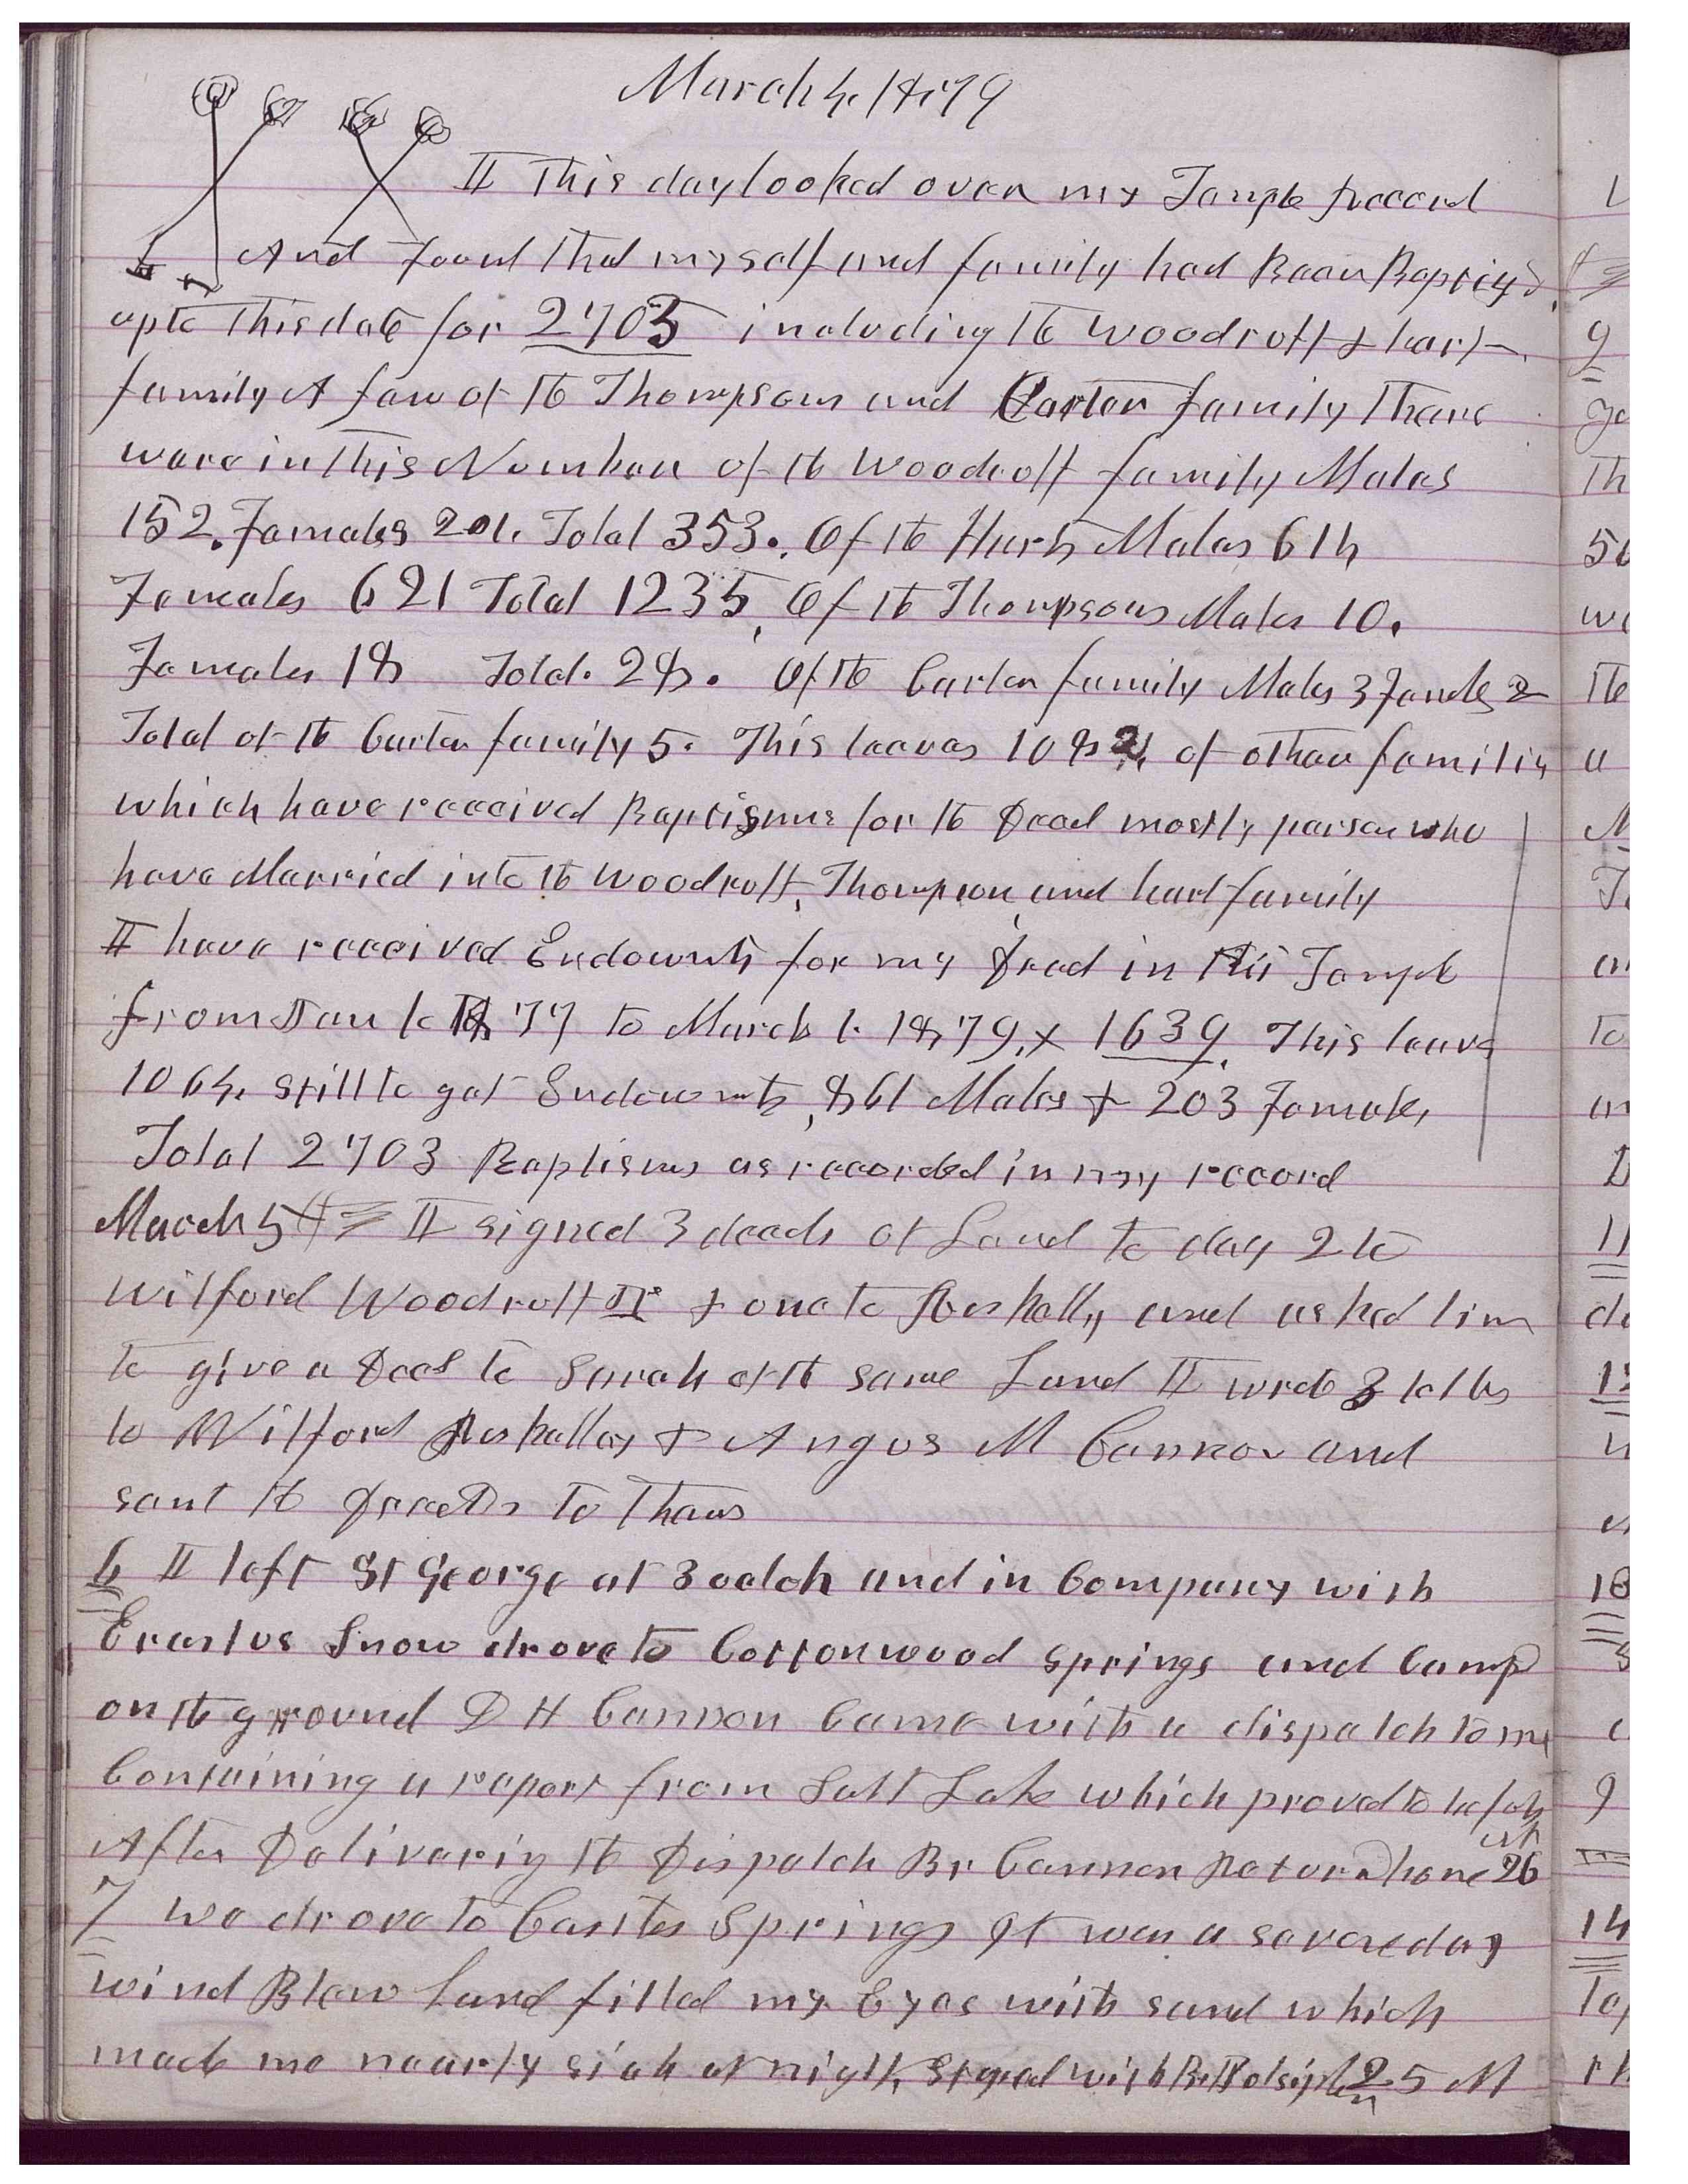 March 4, 1879
I This day looked over my Temple Record
And found that myself and family had Been Baptized
up to this date for 2703 including the Woodruff & hart
family A few of the Thompsons and Carter family There
were in this Number of the Woodruff family Males
152. Females 201. Total 353. Of the Harts Males 614
Females 621 Total 1235, Of the Thompsons Males 10.
Females 18 Total. 28. Of the Carter family Males 3 Female 2
Total of the Carter family 5. This leaves 1082, of other families
which have received Baptisms for the Dead mostly person who
have Married into the Woodruff, Thompson, and hart family
I have received Endowmts for my dead in this Temple
from Jan 1877 to March 1. 1879, 1639. This leave
1064, still to get Endowmts, 861 Males & 203 Female,
Total 2703 Baptisms as recorded in my record
March 5th I signed 3 deeds of Land to day 2 to
Wilford Woodruff Jr & one to Azkelly and asked him
to give a Deed to Sarah of the same Land I wrote 3 letters
to Wilford Azkelley & Angus M Cannon and
sent the Deeds to them
6 I left St George at 3 oclok and in Company with
Erastus Snow drove to Cottonwood Springs and Camp
on the ground D H Cannon Came with a dispatch to me
Containing a report from Salt Lake which proved to be fals
After Delivering the Dispatch Br Cannon Returnd home 26
7 we drove to Springs It was a severe day
wind Blew Sand filled my Eyes with sand which
made me nearly sick at night, Stayed with 25 M